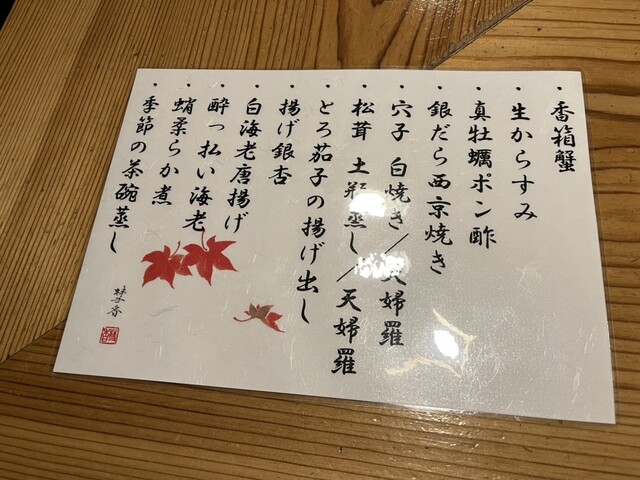 ・香箱蟹
・生からすみ
・真牡蠣ポン酢
・銀だら西京焼き
・穴子 白焼き／天婦羅
・松茸 土瓶蒸し／天婦羅
・とろ茄子の揚げ出し
・揚げ銀杏
・白海老唐揚げ
・酔っ払い海老
・蛸柔らか煮
・季節の茶碗蒸し